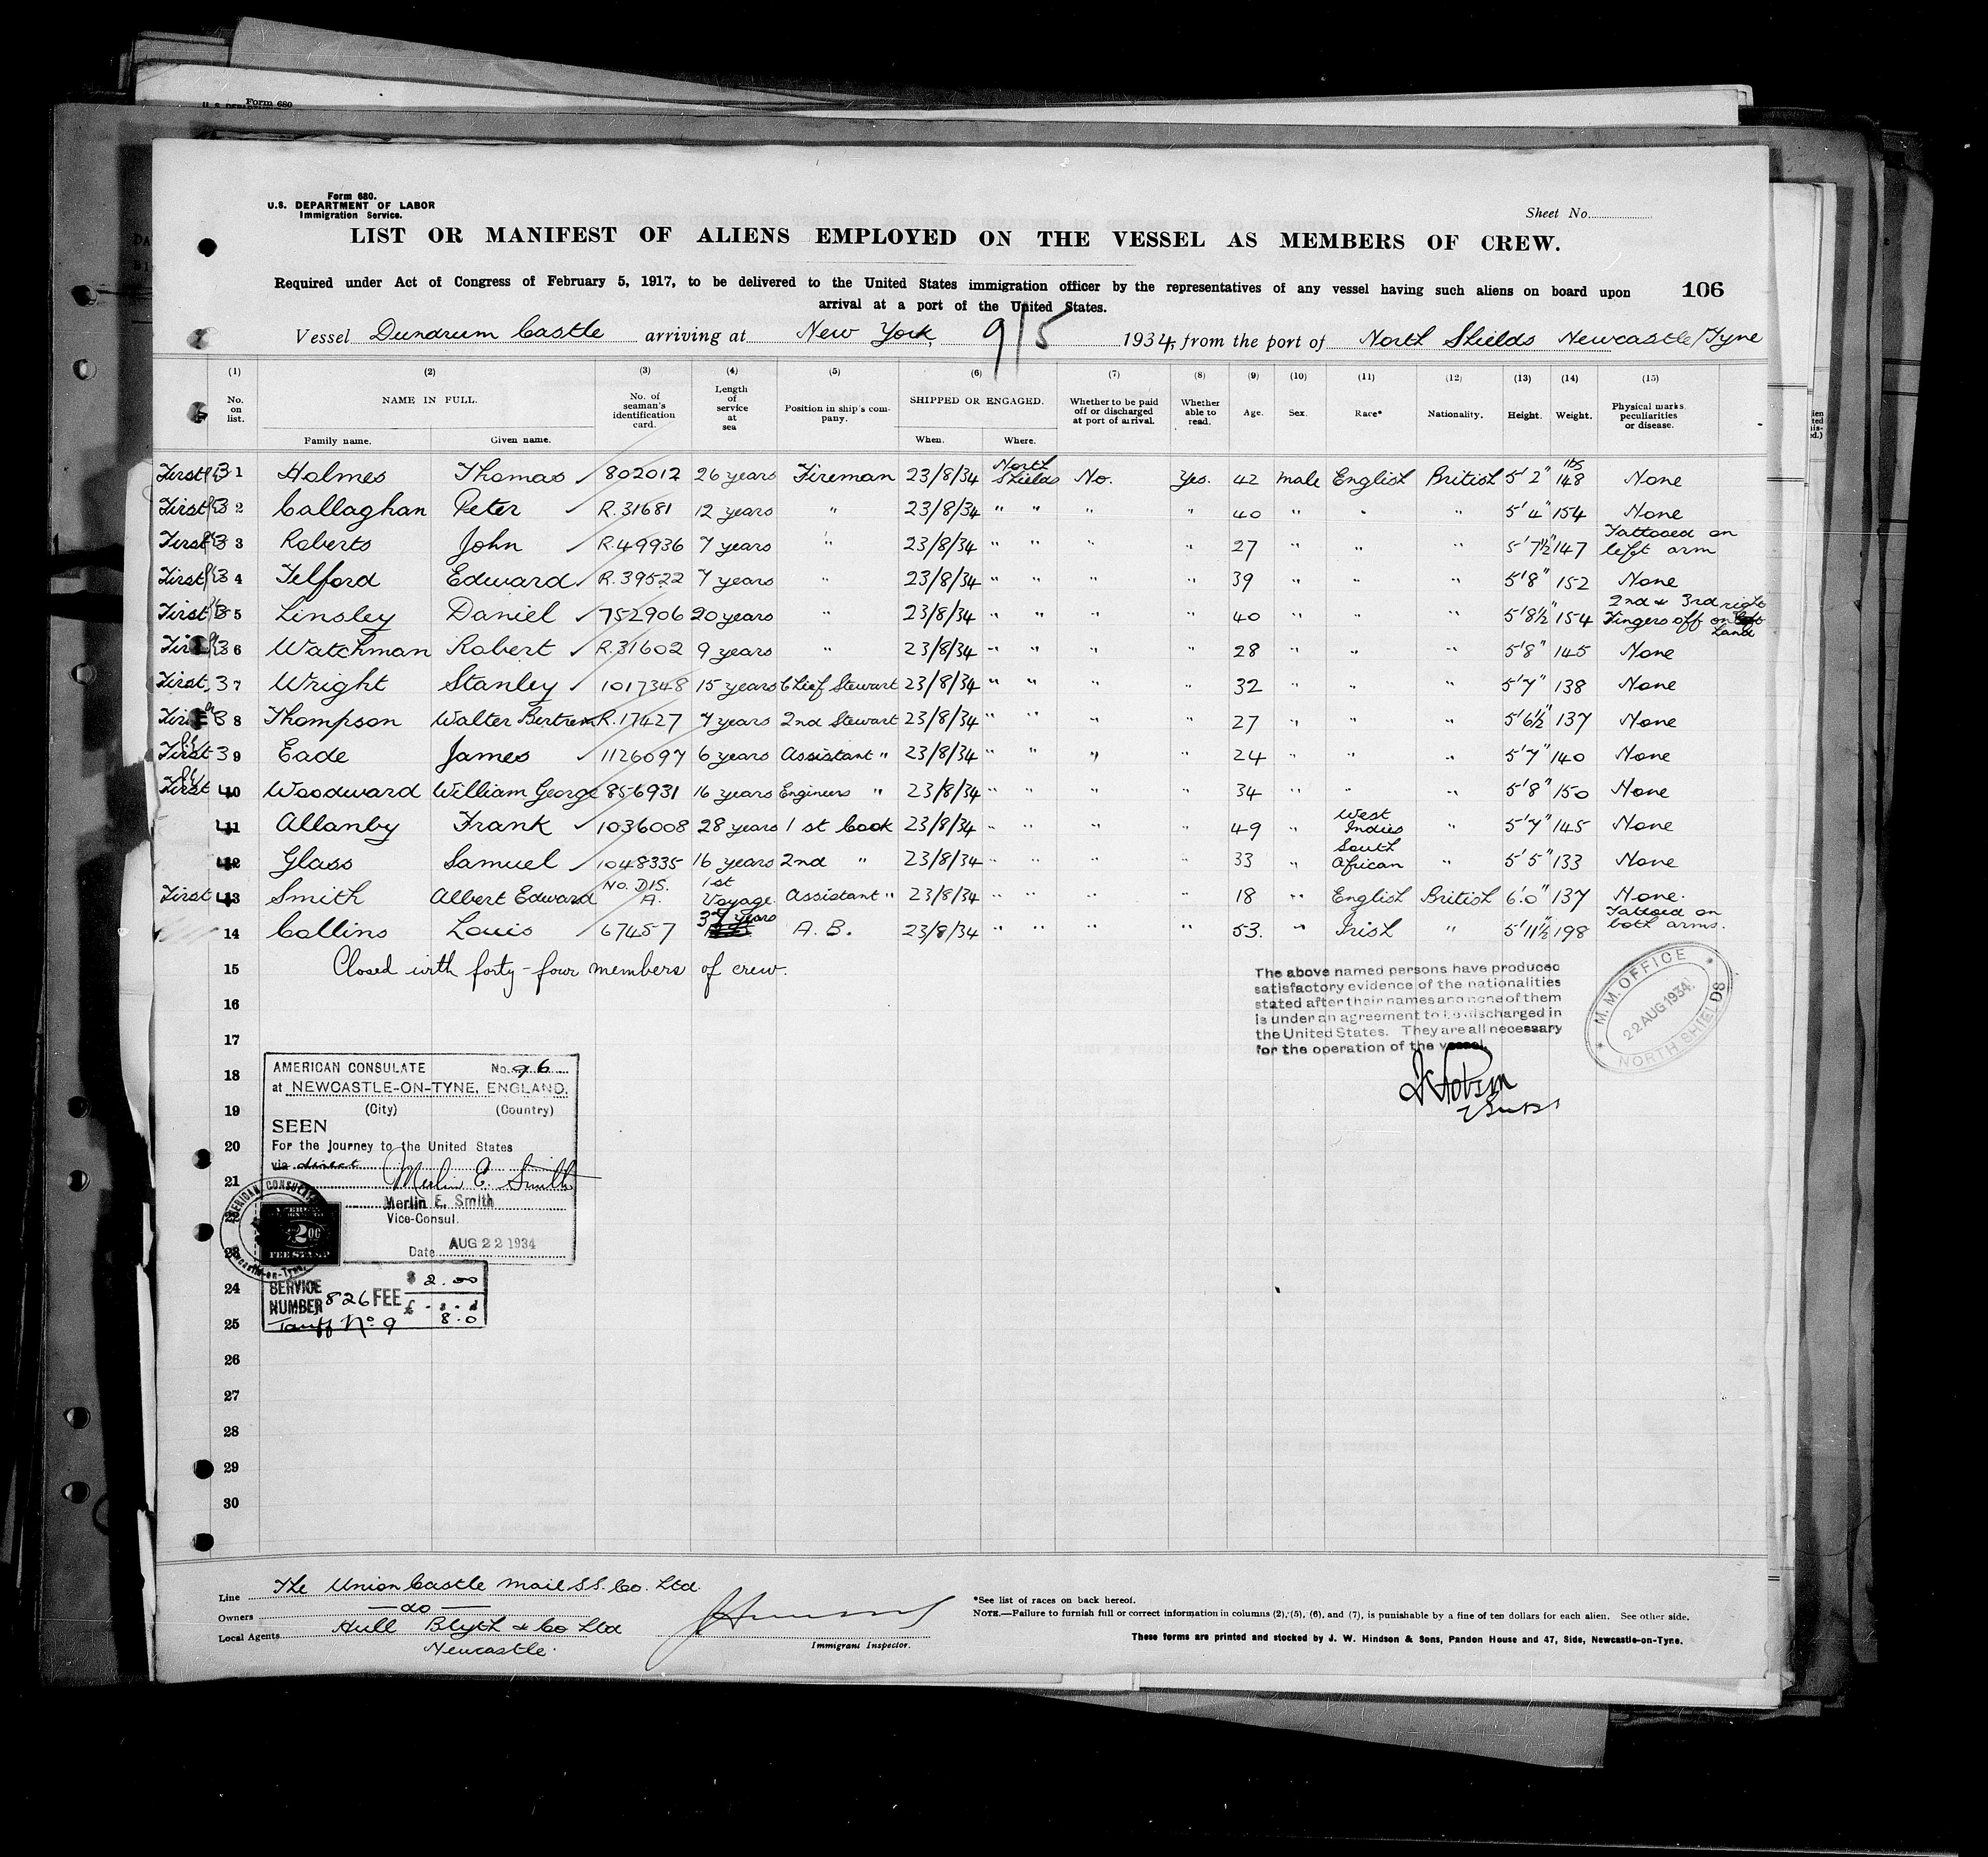 Form 680
Form 680.
U.S. DEPARTMENT OF LABOR
Immigration Service.
Sheet No.
LIST OR MANIFEST OF ALIENS EMPLOYED ON THE VESSEL AS MEMBERS OF CREW.
Required under Act of Congress of February 5, 1917, to be delivered to the United States immigration officer by the representatives of any vessel having such aliens on board upon
arrival at a port of the United States.
106
Vessel Dundrum Castle arriving at New York, 9/5 1934, from the port of North Shields Newcastle/Tyne
(1) (2) (3) (4) (5) (6) (7) (8) (9) (10) (11) (12) (13) (14) (15)
No. on list. NAME IN FULL. Family name. Given name. No. of seaman's identification card. Length of service at sea Position in ship's company. SHIPPED OR ENGAGED. When. Where. Whether to be paid off or discharged at port of arrival. Whether able to read. Age. Sex. Race* Nationality. Height. Weight. Physical marks, peculiarities or disease.
First 3 1 Holmes Thomas 802012 26 years Fireman 23/8/34 North Shields No. Yes. 42 male English British 5'2" lbs 148 None
First 3 2 Callaghan Peter R.31681 12 years " 23/8/34 " " " " 40 " " " 5'4" 154 None
First 3 3 Roberts John R.49936 7 years " 23/8/34 " " " " 27 " " " 5'7½" 147 Tattooed on left arm
First 3 4 Telford Edward R.39522 7 years " 23/8/34 " " " " 39 " " " 5'8" 152 None
First 3 5 Linsley Daniel 752906 20 years " 23/8/34 " " " " 40 " " " 5'8½" 154 2nd & 3rd Fingers off on right hand
First 3 6 Watchman Robert R.31602 9 years " 23/8/34 " " " " 28 " " " 5'8" 145 None
First 3 7 Wright Stanley 1017348 15 years Chief Stewart 23/8/34 " " " " 32 " " " 5'7" 138 None
First 3 8 Thompson Walter Bertrem R.17427 7 years 2nd Stewart 23/8/34 " " " " 27 " " " 5'6½" 137 None
First 3 9 Eade James 1126097 6 years Assistant " 23/8/34 " " " " 24 " " " 5'7" 140 None
First 4 10 Woodward William George 856931 16 years Engineers " 23/8/34 " " " " 34 " " " 5'8" 150 None
4 11 Allanby Frank 1036008 28 years 1st Cook 23/8/34 " " " " 49 " West Indies " 5'7" 145 None
4 12 Glass Samuel 1048335 16 years 2nd " 23/8/34 " " " " 33 " South African " 5'5" 133 None
First 4 13 Smith Albert Edward No. DIS. A. 1st Voyage Assistant " 23/8/34 " " " " 18 " English British 6'0" 137 None.
14 Collins Louis 67457 37 years A.B. 23/8/34 " " " " 53. " Irish " 5'11½ 198 Tattoed on both arms.
15 Closed with forty-four members of crew.
The above named persons have produced
satisfactory evidence of the nationalities
stated after their names and none of them
is under an agreement to be discharged in
the United States. They are all necessary
for the operation of the vessel.
M. M. OFFICE
22 AUG 1934
NORTH SHIELDS
16
17
18
19
20
21
23
24
25
26
27
28
29
30
AMERICAN CONSULATE No. 76
at NEWCASTLE-ON-TYNE, ENGLAND.
(City) (Country)
SEEN
For the journey to the United States
via direct
Merlin E. Smith
Merlin E. Smith
Vice-Consul.
Date AUG 22 1934
AMERICAN CONSULATE
Newcastle-on-Tyne,
$2.00
FEE STAMP
SERVICE NUMBER 826 FEE $ 2.00
£ - s - d
8.0
Tariff No 9
Line The Union Castle Mail S.S. Co. Ltd.
Owners — do —
Local Agents Hull Blyth & Co Ltd
Newcastle.
Immigrant Inspector.
*See list of races on back hereof.
NOTE.—Failure to furnish full or correct information in columns (2), (5), (6), and (7), is punishable by a fine of ten dollars for each alien. See other side.
These forms are printed and stocked by J. W. Hindson & Sons, Pandon House and 47, Side, Newcastle-on-Tyne.